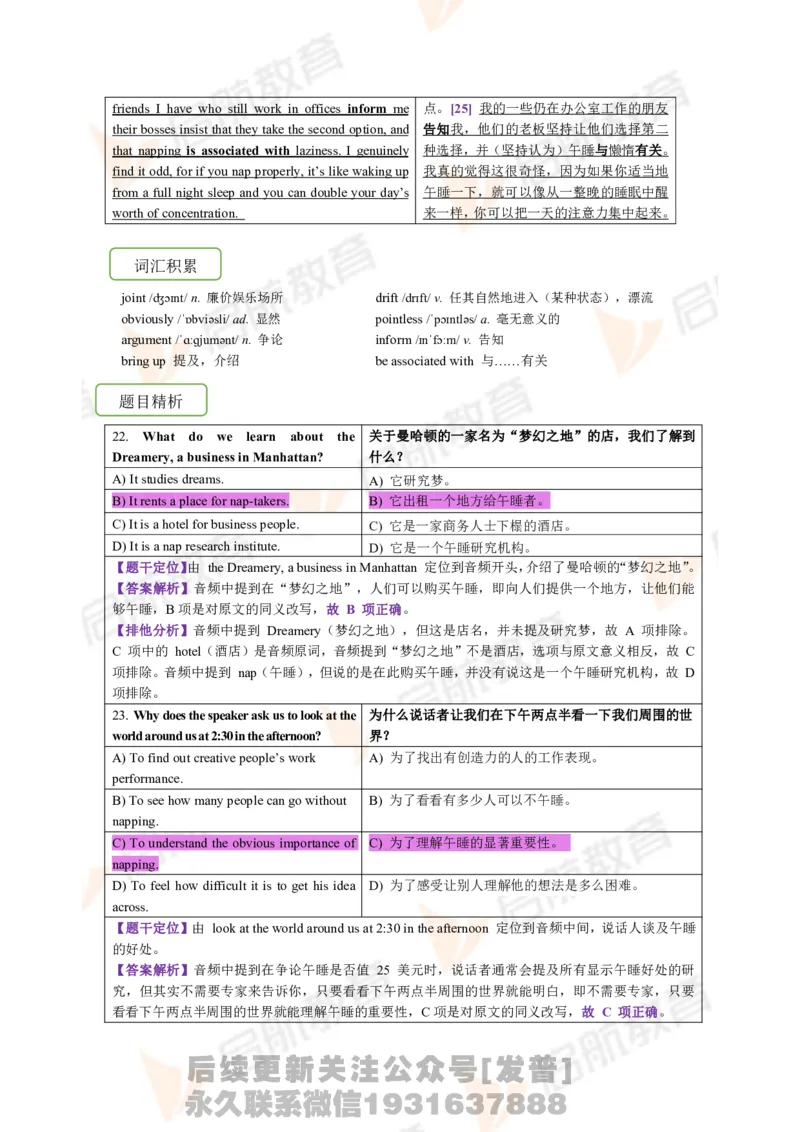 friends I have who still work in offices inform me
their bosses insist that they take the second option, and
that napping is associated with laziness. I genuinely
find it odd, for if you nap properly, it's like waking up
from a full night sleep and you can double your day's
worth of concentration.
点。[25] 我的一些仍在办公室工作的朋友
告知我，他们的老板坚持让他们选择第二
种选择，并（坚持认为）午睡与懒惰有关。
我真的觉得这很奇怪，因为如果你适当地
午睡一下，就可以像从一整晚的睡眠中醒
来一样，你可以把一天的注意力集中起来。
词汇积累
joint /dʒɔɪnt/ n. 廉价娱乐场所
drift /drɪft/ v. 任其自然地进入（某种状态），漂流
obviously /ˈɒbviəsli/ ad. 显然
pointless /ˈpɔɪntləs/ a. 毫无意义的
argument /ˈɑːɡjumənt/ n. 争论
inform /ɪnˈfɔːm/ v. 告知
bring up 提及，介绍
be associated with 与……有关
题目精析
22. What do we learn about the
Dreamery, a business in Manhattan?
关于曼哈顿的一家名为“梦幻之地”的店，我们了解到
什么？
A) It studies dreams.
A) 它研究梦。
B) It rents a place for nap-takers.
B) 它出租一个地方给午睡者。
C) It is a hotel for business people.
C) 它是一家商务人士下榻的酒店。
D) It is a nap research institute.
D) 它是一个午睡研究机构。
【题干定位】由 the Dreamery, a business in Manhattan 定位到音频开头，介绍了曼哈顿的“梦幻之地”。
【答案解析】音频中提到在“梦幻之地”，人们可以购买午睡，即向人们提供一个地方，让他们能
够午睡，B 项是对原文的同义改写，故 B 项正确。
【排他分析】音频中提到 Dreamery（梦幻之地），但这是店名，并未提及研究梦，故 A 项排除。
C 项中的 hotel（酒店）是音频原词，音频提到“梦幻之地”不是酒店，选项与原文意义相反，故 C
项排除。音频中提到 nap（午睡），但说的是在此购买午睡，并没有说这是一个午睡研究机构，故 D
项排除。
23. Why does the speaker ask us to look at the
world around us at 2:30 in the afternoon?
为什么说话者让我们在下午两点半看一下我们周围的世
界？
A) To find out creative people's work
performance.
A) 为了找出有创造力的人的工作表现。
B) To see how many people can go without
napping.
B) 为了看看有多少人可以不午睡。
C) To understand the obvious importance of
napping.
C) 为了理解午睡的显著重要性。
D) To feel how difficult it is to get his idea
across.
D) 为了感受让别人理解他的想法是多么困难。
【题干定位】由 look at the world around us at 2:30 in the afternoon 定位到音频中间，说话人谈及午睡
的好处。
【答案解析】音频中提到在争论午睡是否值 25 美元时，说话者通常会提及所有显示午睡好处的研
究，但其实不需要专家来告诉你，只要看看下午两点半周围的世界就能明白，即不需要专家，只要
看看下午两点半周围的世界就能理解午睡的重要性，C 项是对原文的同义改写，故 C 项正确。
后续更新关注公众号[发普]
永久联系微信1931637888
启航教育